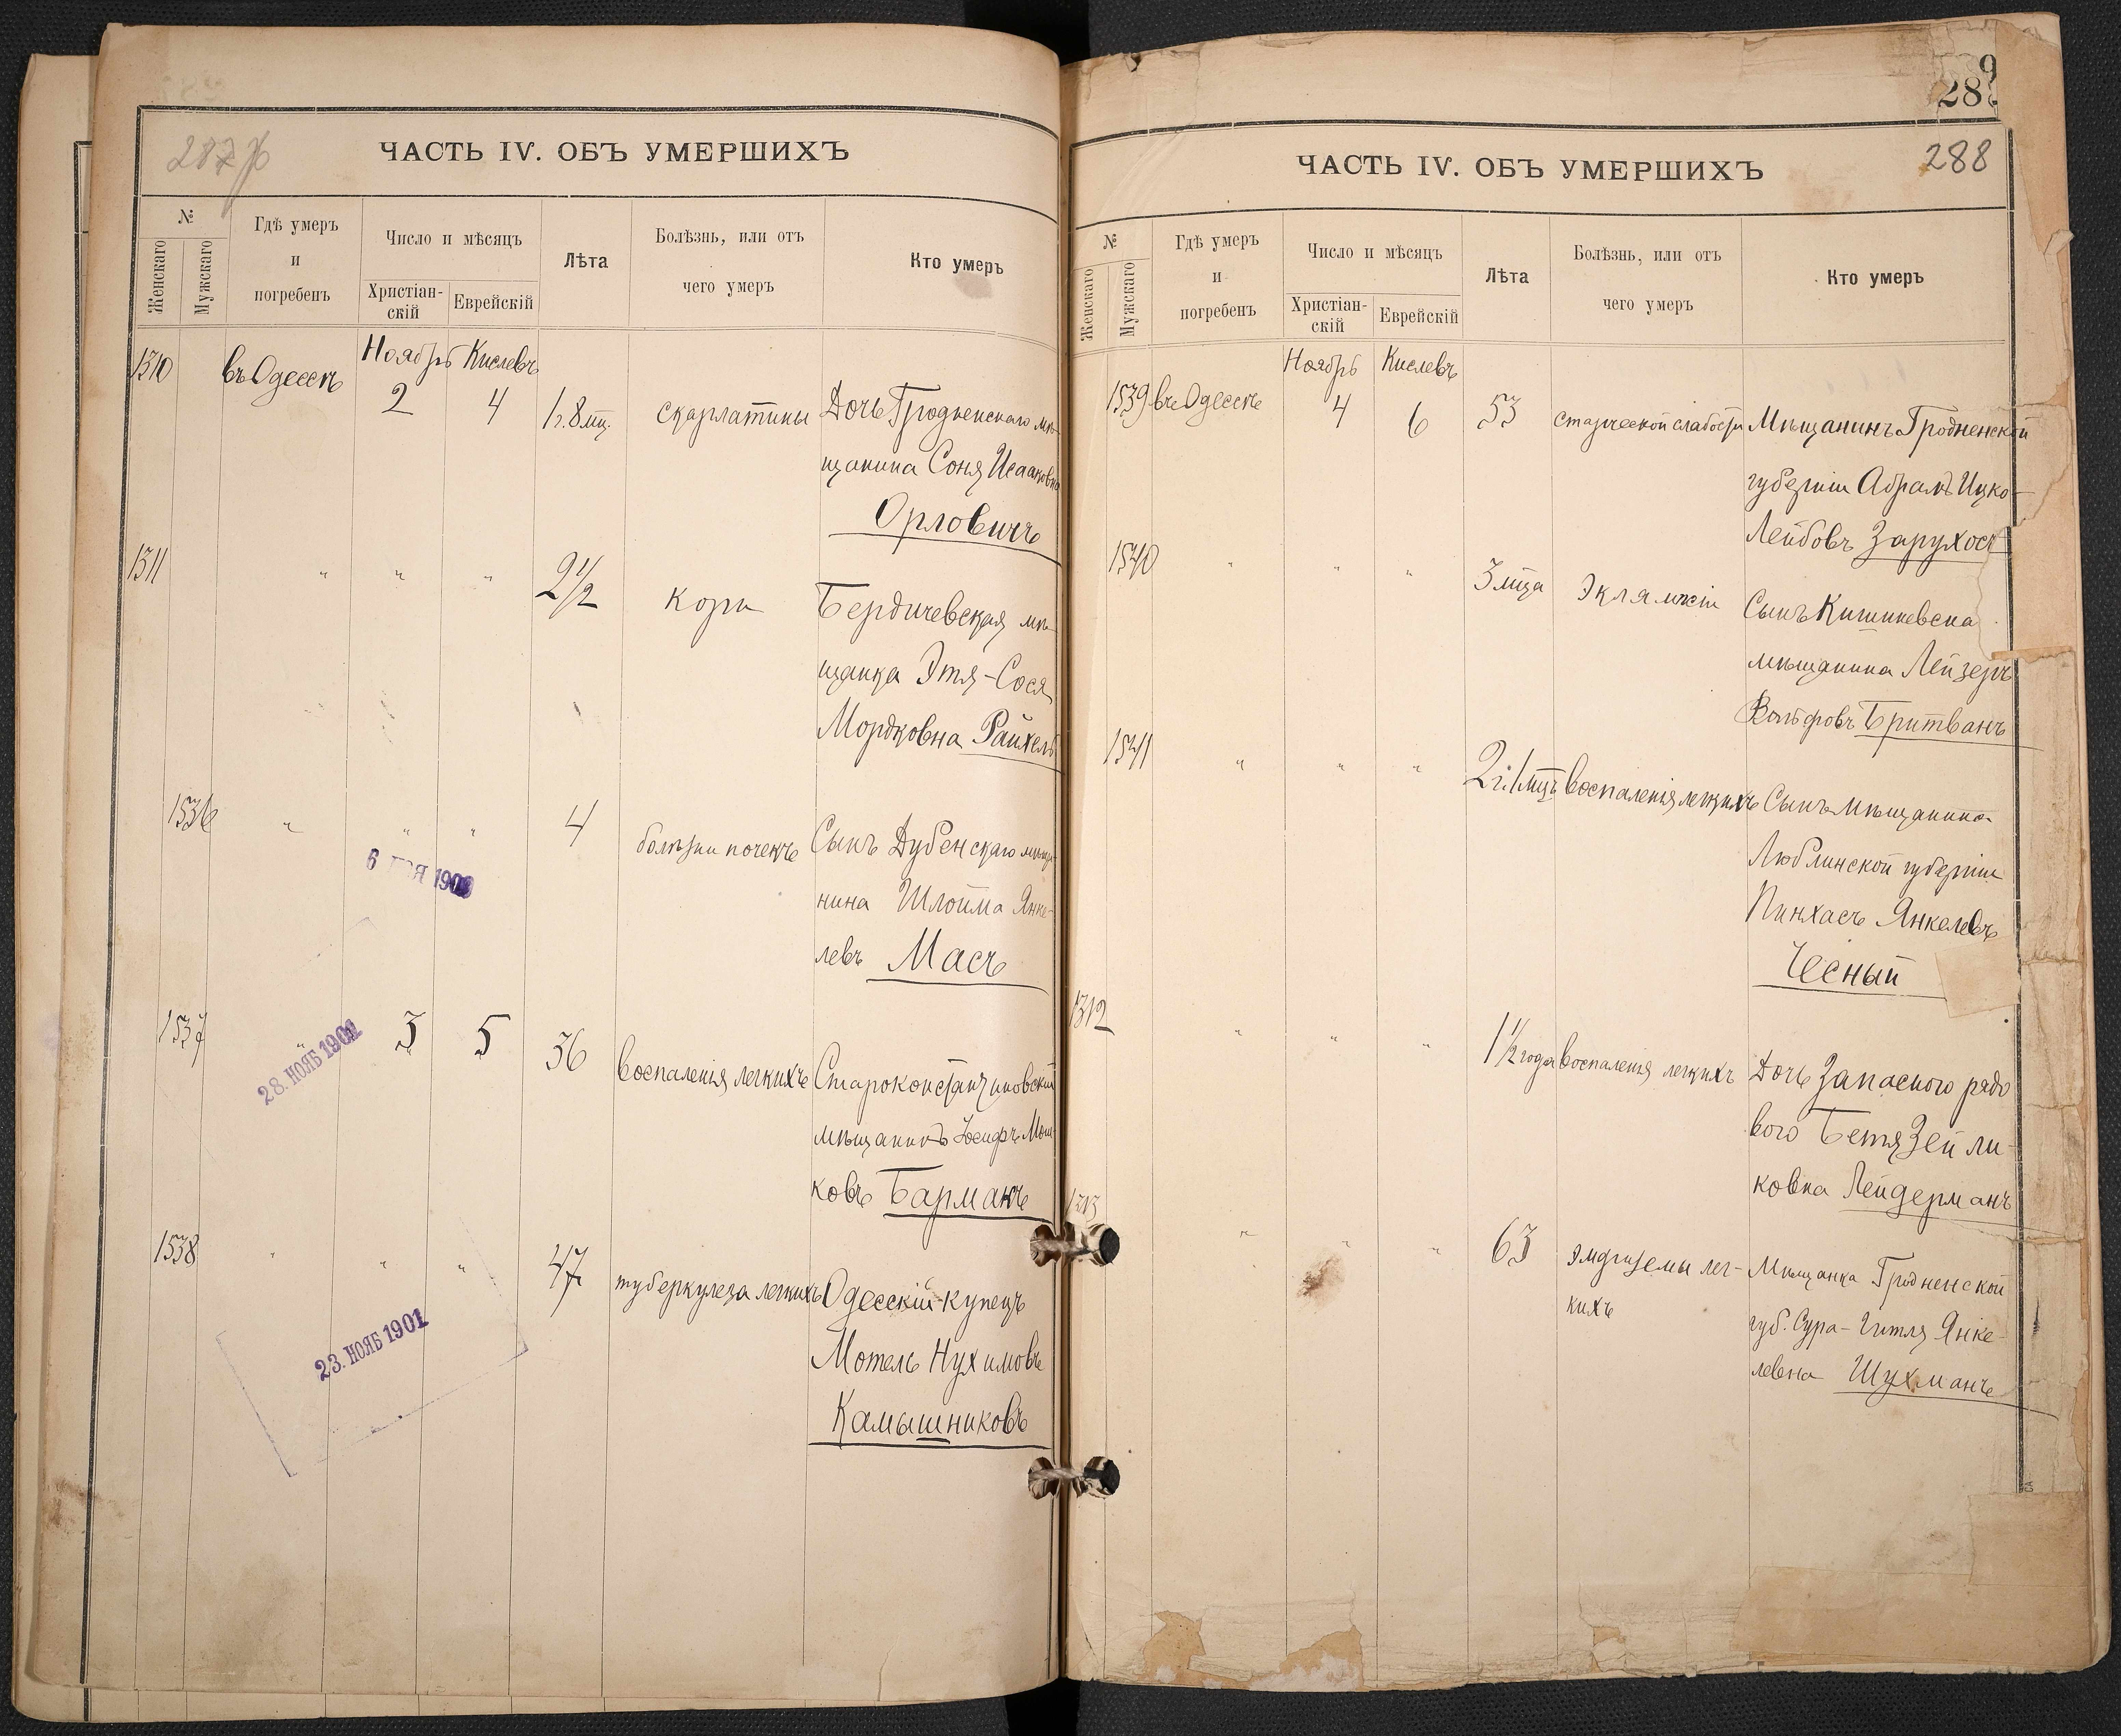 287 об
ЧАСТЬ IV. ОБЪ УМЕРШИХЪ
№
Женскаго
Мужскаго
Гдѣ умеръ
и
погребенъ
Число и мѣсяцъ
Христіан-
скій
Еврейскій
Лѣта
Болѣзнь, или отъ
чего умеръ
Кто умеръ
Ноябрь Кислевъ
1310 въ Одессѣ 2 4 1 г. 8 мц. скарлатины Дочь Гродненскаго мѣ-
щанина Соня Исааковна
Орловичъ
1311 " " " 2 1/2 кори Бердичевская мѣ-
щанка Этя-Сося
Мордковна Райхель
1536 " " " 4 болѣзни почекъ Сынъ Дубенскаго мѣща-
нина Шлойма Янке-
левъ Масъ
6 1902
1537 " 3 5 36 воспаленія легкихъ Староконстантиновскій
мѣщанинъ Іосифъ Мош-
ковъ Барманъ
28. НОЯБ 1901
1538 " " " 47 туберкулеза легкихъ Одесскій купецъ
Мотель Нухимовъ
Камышниковъ
23. НОЯБ 1901
289
288
ЧАСТЬ IV. ОБЪ УМЕРШИХЪ
№
Женскаго
Мужскаго
Гдѣ умеръ
и
погребенъ
Число и мѣсяцъ
Христіан-
скій
Еврейскій
Лѣта
Болѣзнь, или отъ
чего умеръ
Кто умеръ
Ноябрь Кислевъ
1539 въ Одессѣ 4 6 53 старческой слабости Мѣщанинъ Гродненской
губерніи Абрамъ Ицко-
Лейбовъ
1540 " " " 3 мца Эклямпсіи Сынъ Кишиневска
мѣщанина Лейзеръ
Вольфовъ Бритванъ
1541 " " " 2 г. 1 мцъ воспаленія легкихъ Сынъ мѣщанина
Люблинской губерніи
Пинхасъ Янкелевъ
Чесный
1312 " " " 1 1/2 года воспаленія легкихъ Дочь Запасного рядо
вого Бетя Зейли-
ковна Лейдерманъ
1313 " " " 63 эмфиземы лег- Мѣщанка Гродненской
кихъ губ. Сура-Гитля Янке-
левна Шухманъ